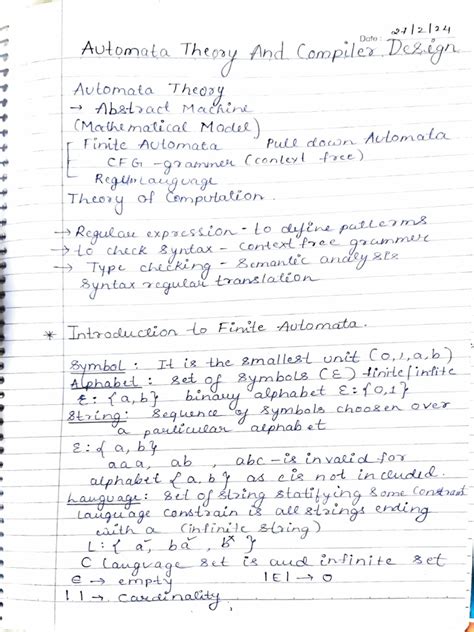 Date: 27/2/24
Automata Theory And Compiler Design
Automata Theory
→ Abstract Machine
(Mathematical Model)
Finite Automata Pull down Automata
CFG - grammer (context free)
Regular Language
Theory of Computation
→ Regular expression - to define patterms
→ to check syntax - context free grammer
→ Type checking - Semantic analysis
Syntax regular translation
* Introduction to Finite Automata.
Symbol : It is the smallest unit (0,1,a,b)
Alphabet : set of symbols (Ɛ) finite/infite
Ɛ: {a,b} binary alphabet Ɛ:{0,1}
String: Sequence of symbols choosen over
a particular alphabet
Ɛ: {a, b}
aaa, ab, abc - is invalid for
alphabet {a, b} as c is not included.
Language: set of string statifying some constrant
language constrain is all strings ending
with a (infinite string)
L: { a, ba, }
C language set is aud infinite set
ϵ → empty |Ɛ| → 0
| | → Cardinality